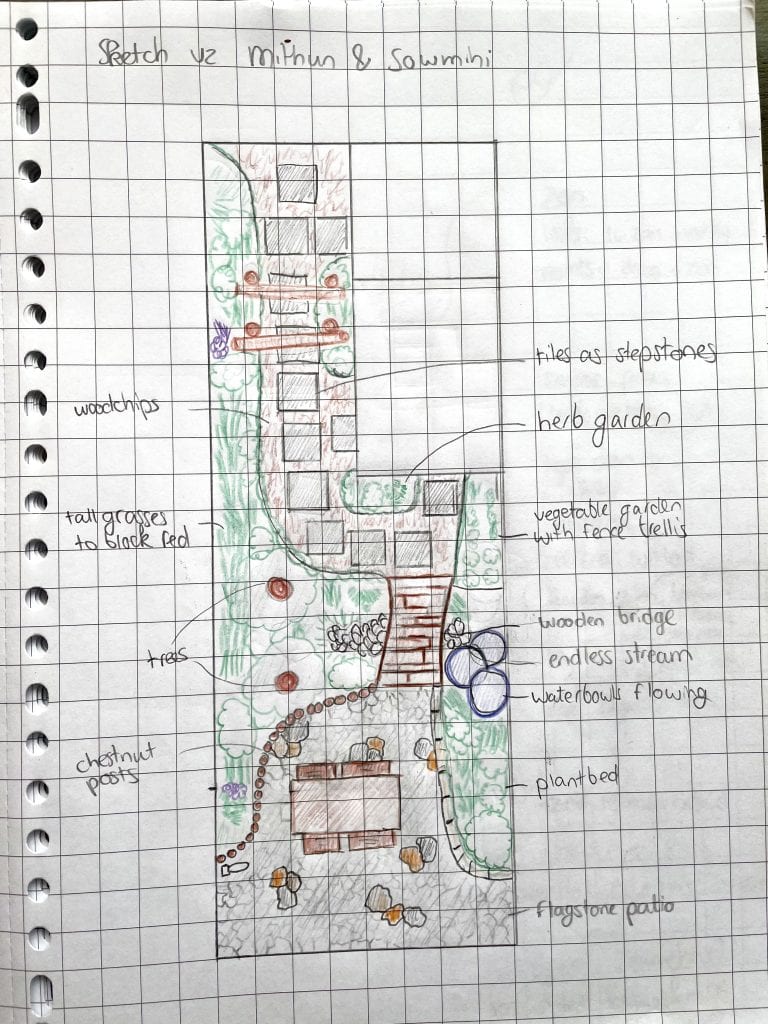 Sketch v2 Mithun & Sowmini
tiles as stepstones
woodchips
herb garden
tall grasses
to block fed
vegetable garden
with fence trellis
wooden bridge
trees
endless stream
waterbowls flowing
chestnut
posts
plantbed
flagstone patio